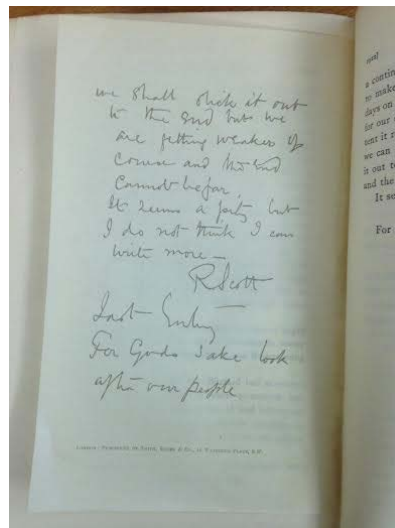 we shall stick it out
to the end but we
are getting weaker of
course and the end
cannot be far.
It seems a pity but
I do not think I can
write more —
R Scott
Last Entry
For Gods sake look
after our people
a contin
to make
days on
for our
tent it r
we can
it out t
and the
It so
For